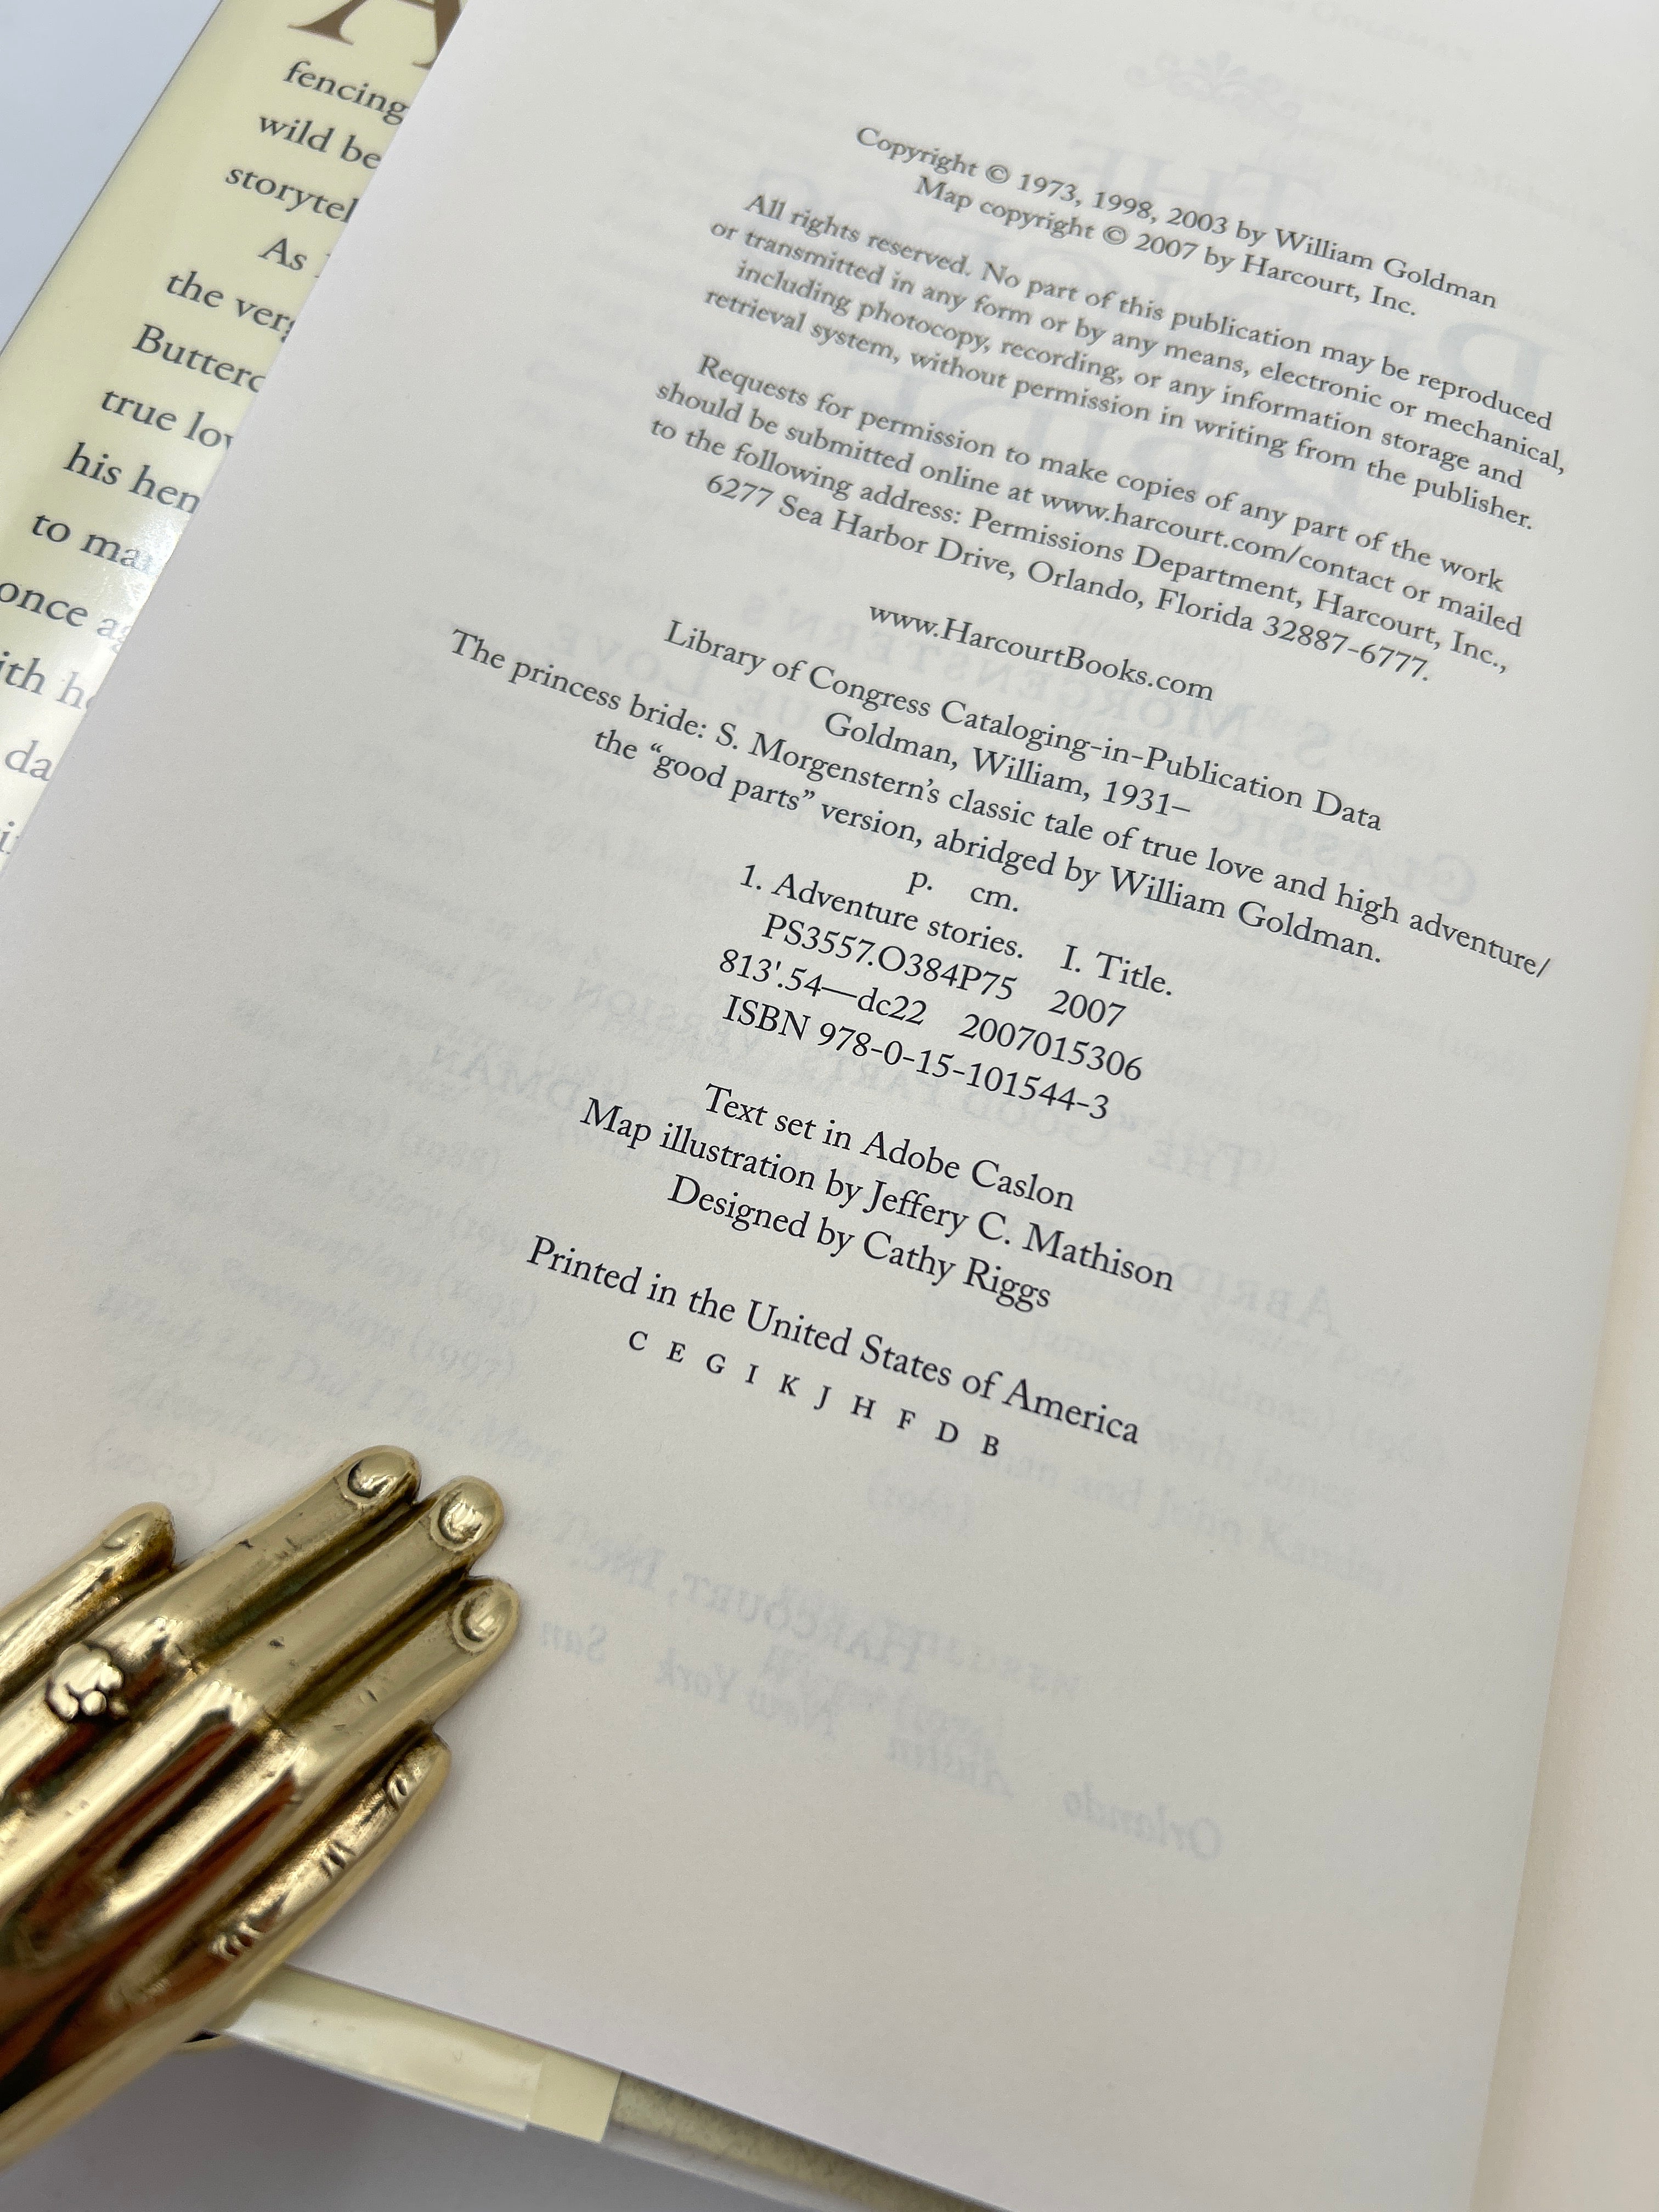 A
fencing
wild be
storytel
As
the verg
Butterc
true lov
his hen
to mar
once ag
ith he
da
Copyright © 1973, 1998, 2003 by William Goldman
Map copyright © 2007 by Harcourt, Inc.
All rights reserved. No part of this publication may be reproduced
or transmitted in any form or by any means, electronic or mechanical,
including photocopy, recording, or any information storage and
retrieval system, without permission in writing from the publisher.
Requests for permission to make copies of any part of the work
should be submitted online at www.harcourt.com/contact or mailed
to the following address: Permissions Department, Harcourt, Inc.,
6277 Sea Harbor Drive, Orlando, Florida 32887-6777.
www.HarcourtBooks.com
Library of Congress Cataloging-in-Publication Data
Goldman, William, 1931–
The princess bride: S. Morgenstern's classic tale of true love and high adventure/
the “good parts” version, abridged by William Goldman.
p. cm.
1. Adventure stories. I. Title.
PS3557.O384P75 2007
813'.54—dc22 2007015306
ISBN 978-0-15-101544-3
Text set in Adobe Caslon
Map illustration by Jeffery C. Mathison
Designed by Cathy Riggs
Printed in the United States of America
C E G I K J H F D B